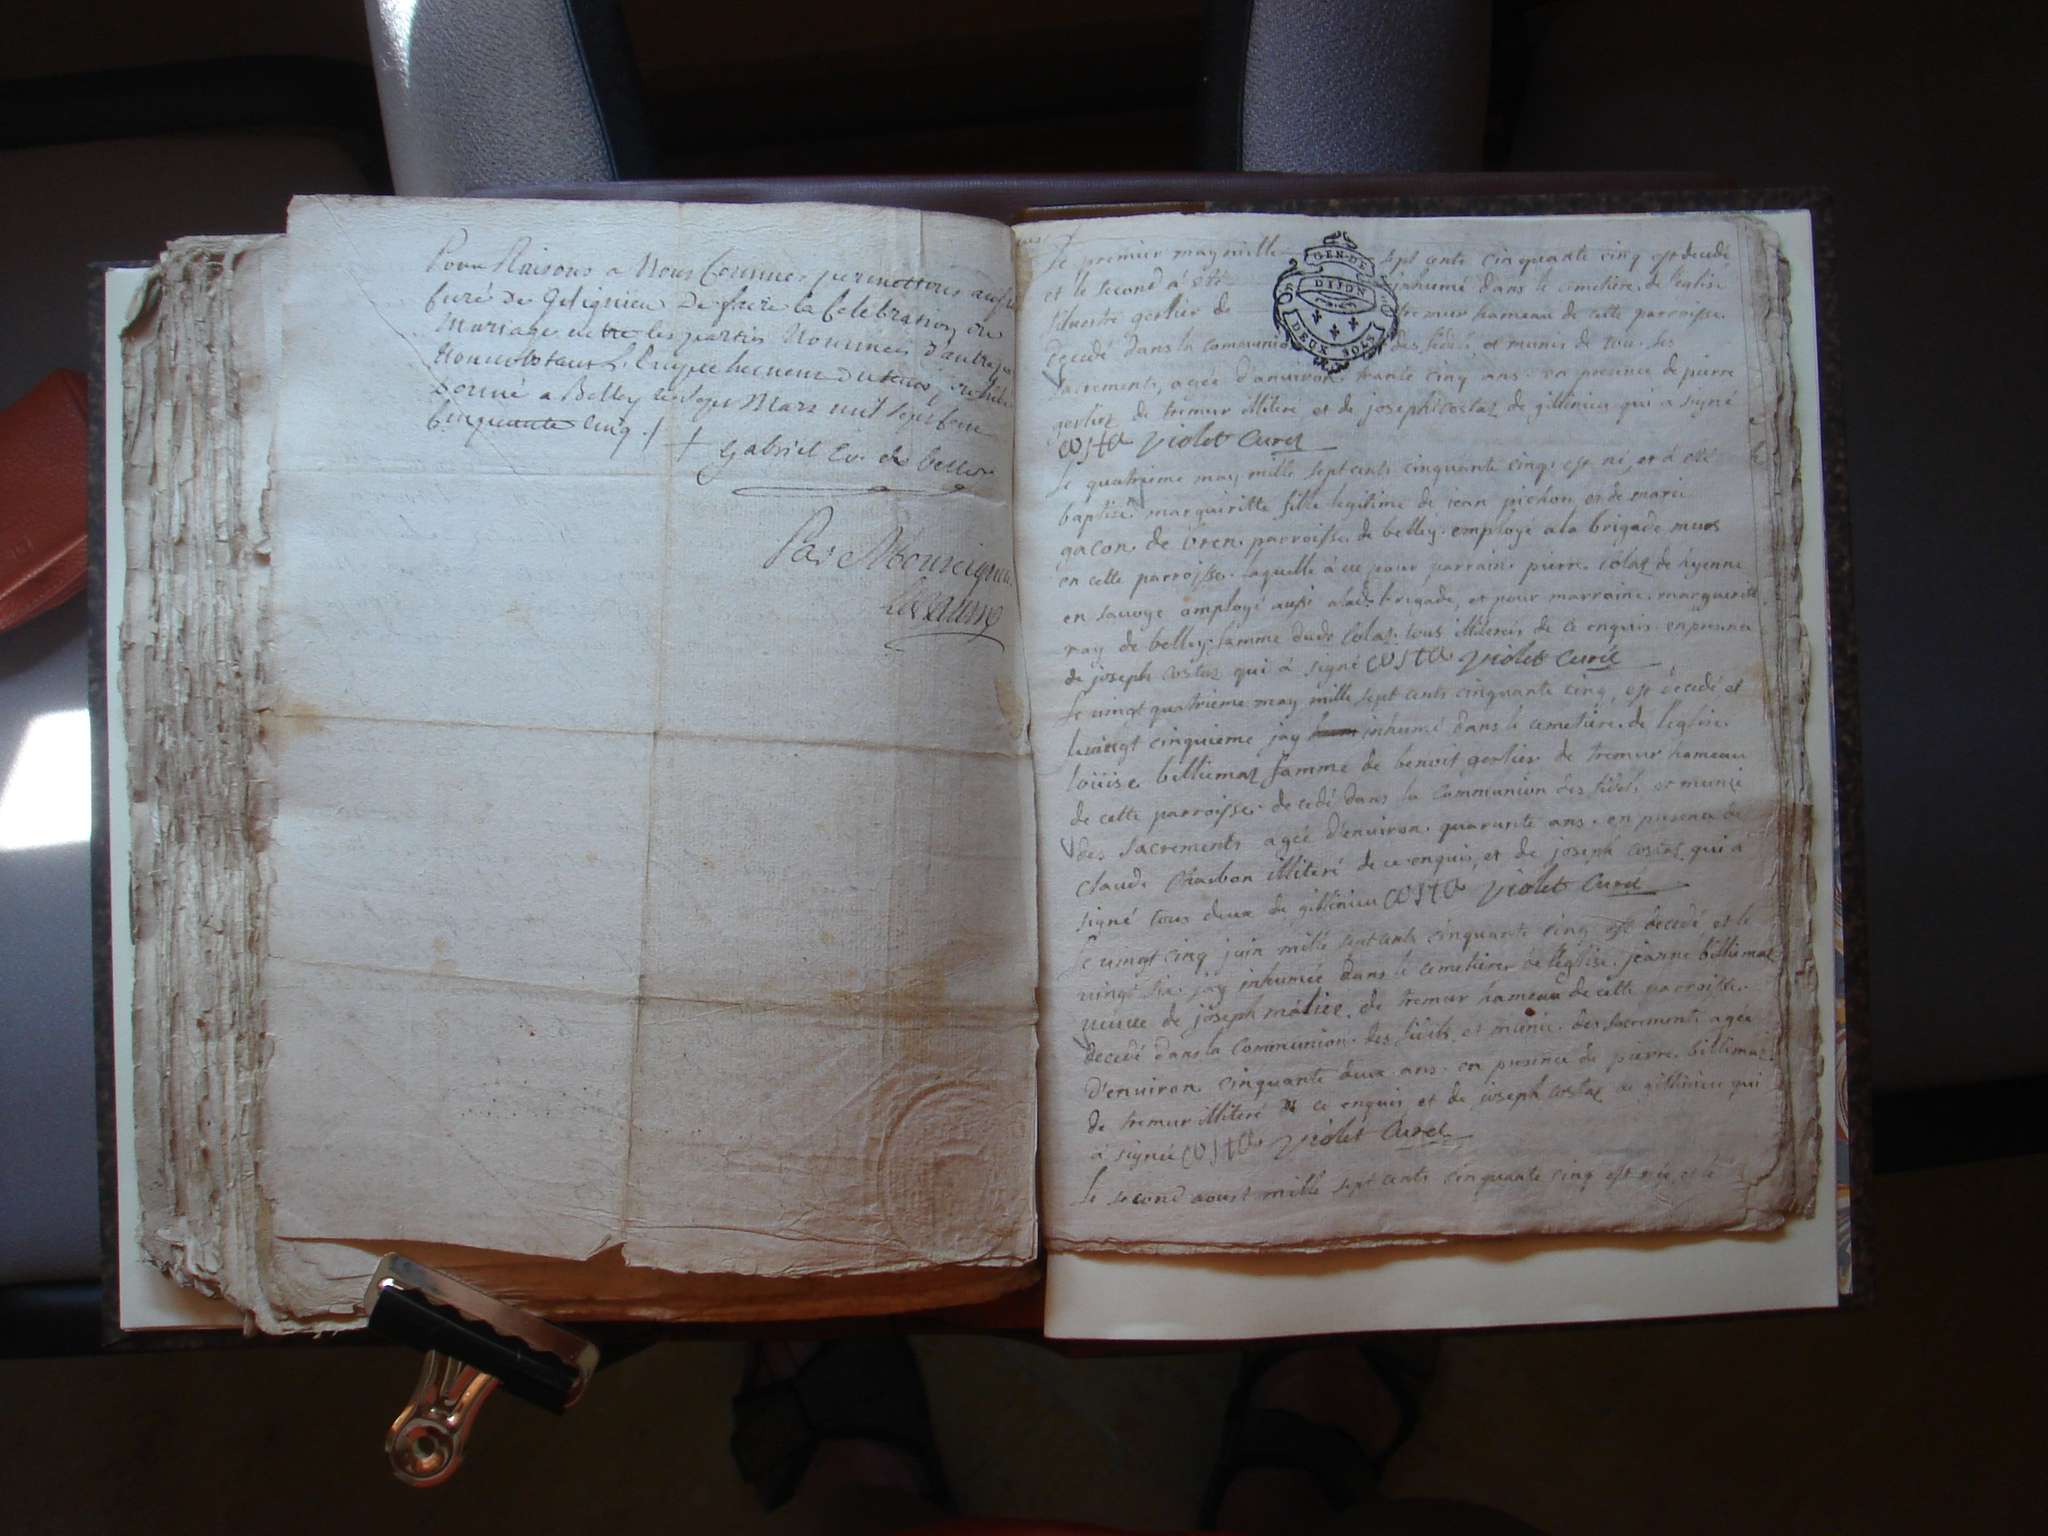 Pour Raisons a Nous Connues permettons au Sr
Curé de Getignieu De faire la Celebration du
Mariage entre les parties Nommées d'autre part
Nonnobstant
Donné a Belley le Mars mil sept cent
Cinquante Cinq ./.
+ Gabriel Ev. de Belley
Par Monseigneur
le premier may mille sept cents cinquante cinq est decedé
et le second a été inhumé dans le cemetiere de l'eglise
gerlier de tremur hameau de cette parroisse
decedé dans la communion des fidels et munis de tou. les
sacrements, agée d'anuiron trante cinq ans. en presence de pierre
gerlier de tremur illiteré et de joseph costaz de gittinieu qui a signé
costa violet Curé
le quatrieme may mille sept cents cinquante cinq est né et a eté
baptisé marguiritte fille legitime de jean pichon et de marie
gacon de oren parroisse de belley employé a la brigade murs
en cette parroisse. laquelle a eu pour parrain pierre Colaz de hyenne
en savoye employé aussi a lad. brigade, et pour marraine marguerite
ray de belley famme dudt Colaz tous illiterés de ce enquis en presence
de joseph costaz qui a signé costa violet Curé
le vingt quatrieme may mille sept cents cinquante cinq est decedé et
le vingt cinquieme jay inhumé dans le cemetiere de leglise
loüise billiemaz famme de benoit gerlier de tremur hameau
de cette parroisse decedé dans la Communion des fidels et munie
des sacrements agée d'environ quarante ans en presence de
claude Charbon illiteré de ce enquis, et de joseph costaz qui à
signé tous deux de gittinieu costa violet Curé
le vingt cinq juin mille sept cents cinquante cinq est decedé et le
vingt six jay inhumée dans le cemetiere de l'eglise jeanne billiemaz
veuve de joseph mélier de tremur hameau de cette parroisse
decedé dans la Communion des fidels et munie des sacrements agée
d'environ cinquante deux ans en presence de pierre billiemaz
de tremur illiteré de ce enquis et de joseph costaz de gittinieu qui
à signé costa violet Curé
le second aoust mille sept cents cinquante cinq est née et le
GEN. DE
DIJON
DEUX SOLS